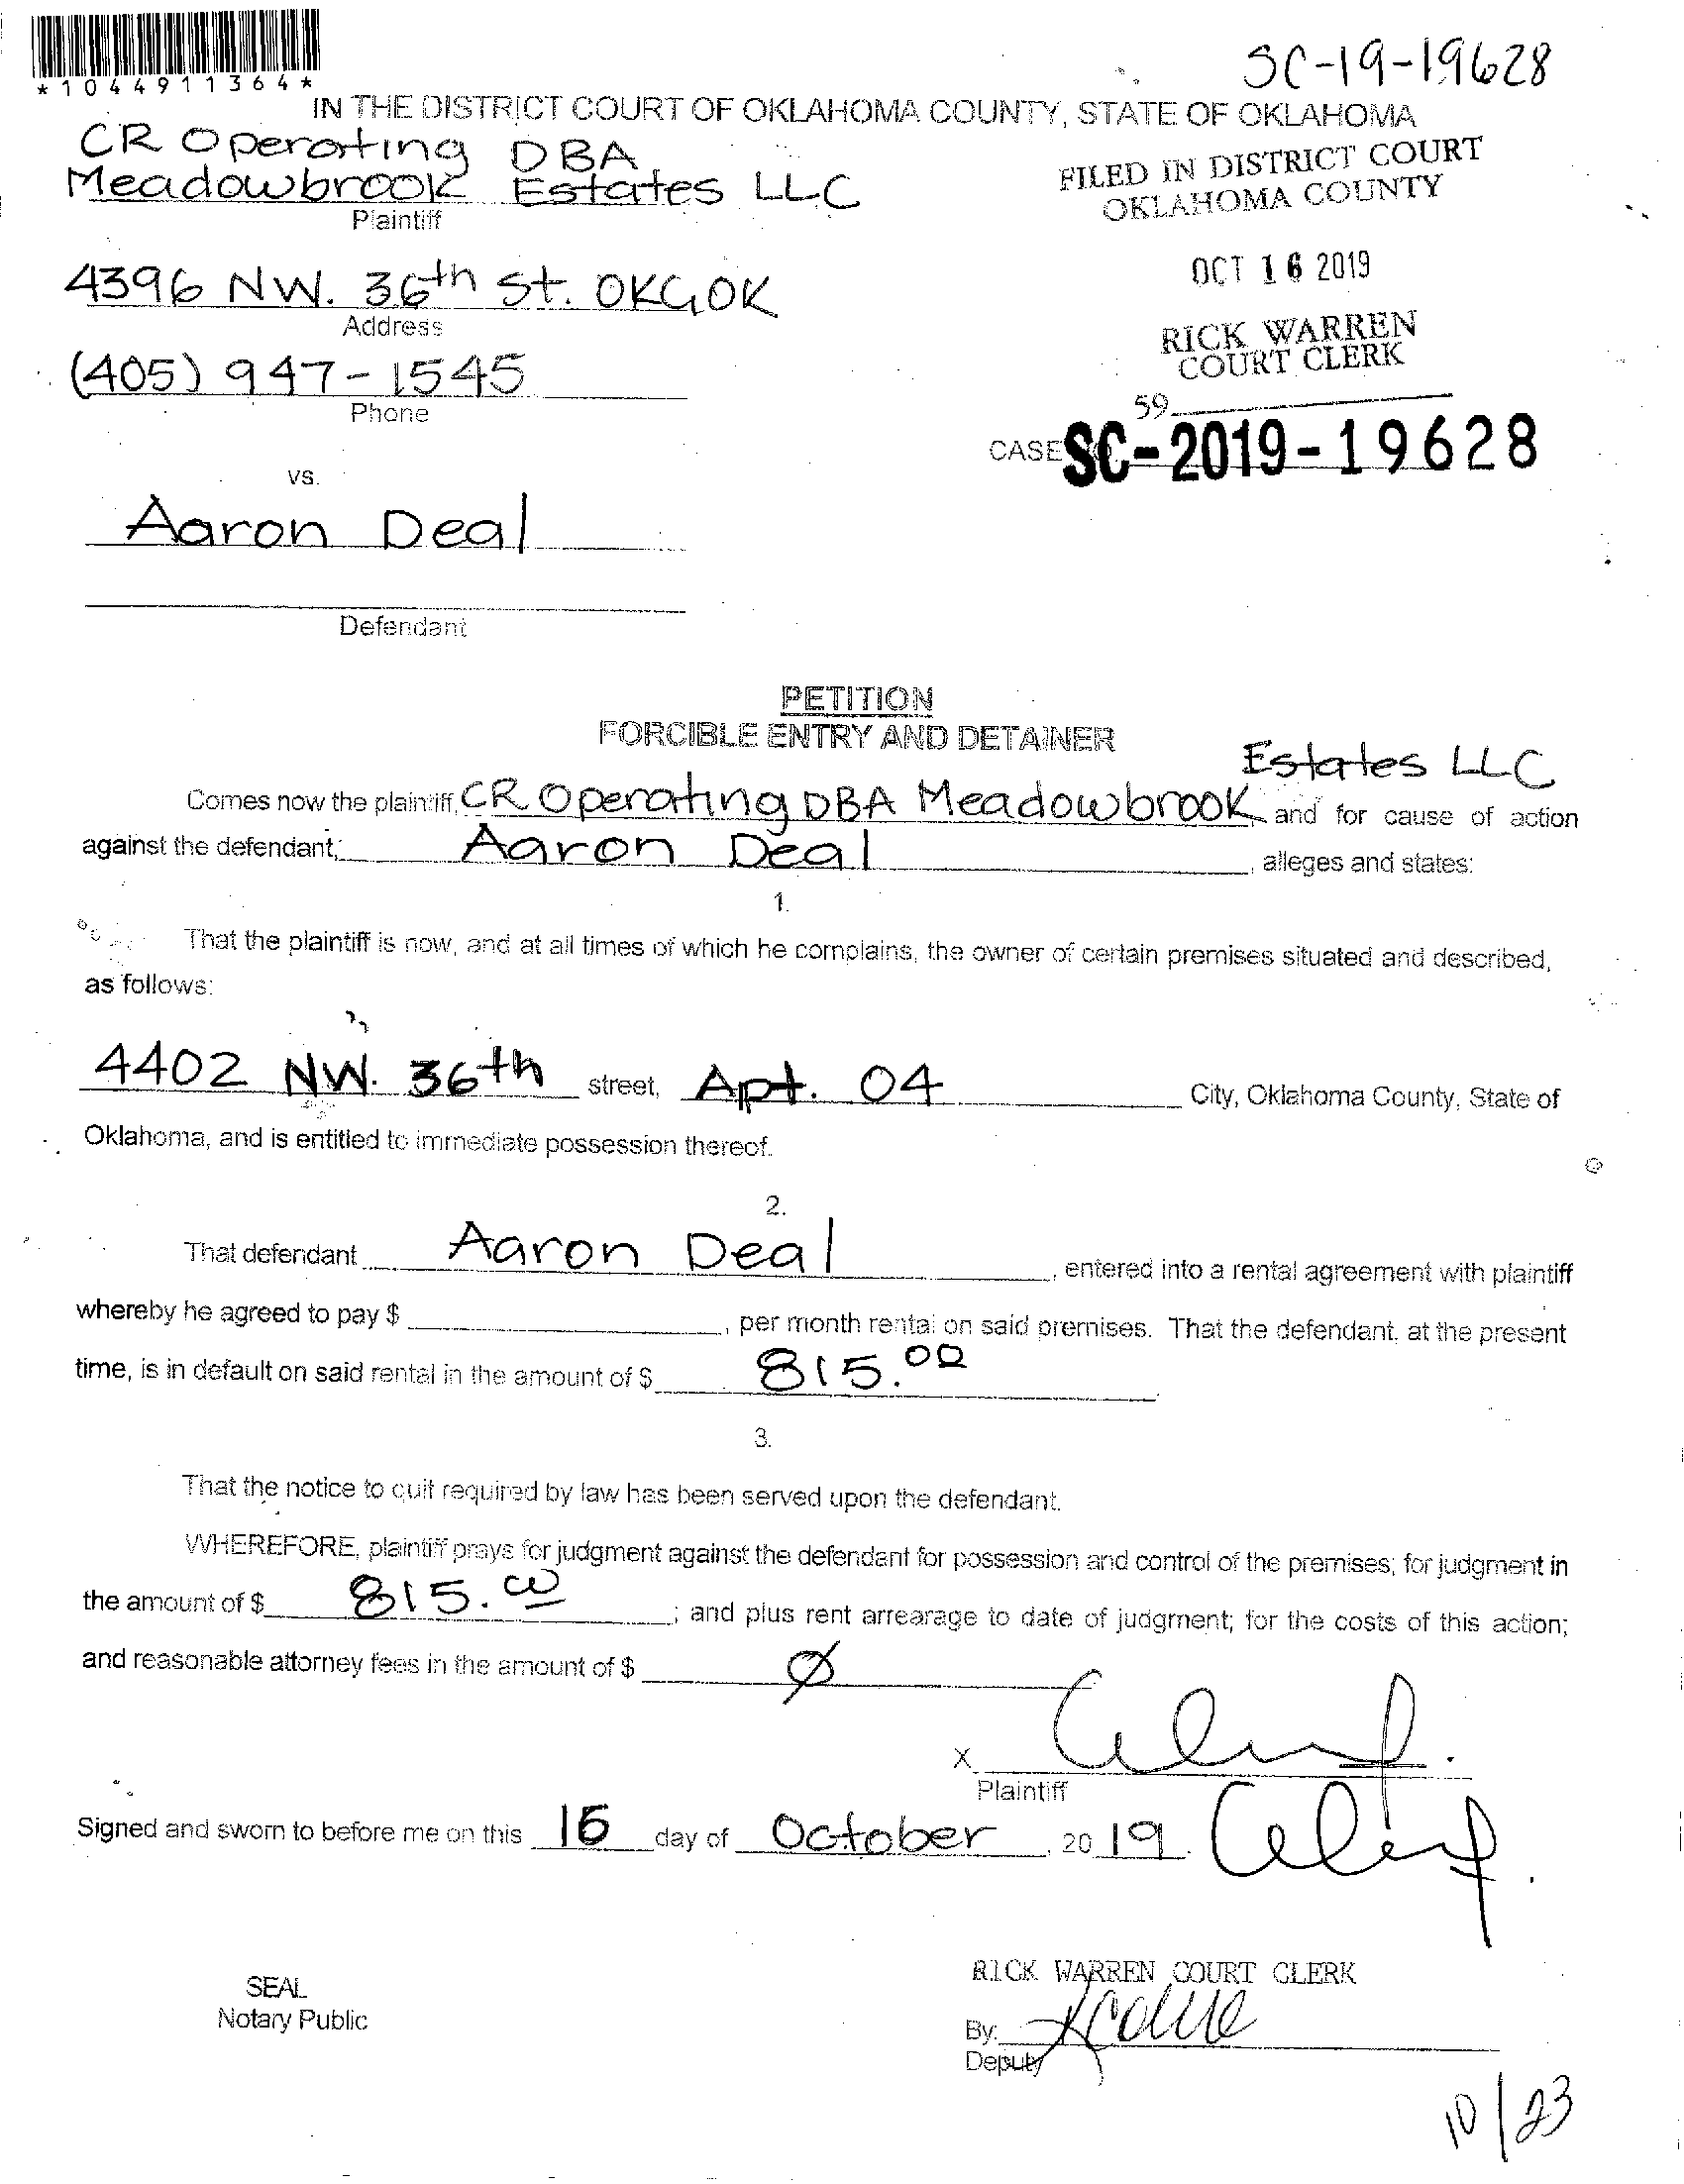 *1044911364*
SC-19-19628
IN THE DISTRICT COURT OF OKLAHOMA COUNTY, STATE OF OKLAHOMA
CR Operating DBA
Meadowbrook Estates LLC
Plaintiff
FILED IN DISTRICT COURT
OKLAHOMA COUNTY
4396 NW. 36th St. OKC, OK
Address
OCT 16 2019
(405) 947-1545
Phone
RICK WARREN
COURT CLERK
59
CASE SC-2019-19628
vs.
Aaron Deal
Defendant
PETITION
FORCIBLE ENTRY AND DETAINER
Estates LLC
Comes now the plaintiff, CR Operating DBA Meadowbrook and for cause of action
against the defendant, Aaron Deal, alleges and states:
1.
That the plaintiff is now, and at all times of which he complains, the owner of certain premises situated and described,
as follows:
4402 NW. 36th street, Apt. 04 City, Oklahoma County, State of
Oklahoma, and is entitled to immediate possession thereof.
2.
That defendant Aaron Deal, entered into a rental agreement with plaintiff
whereby he agreed to pay $ , per month rental on said premises. That the defendant, at the present
time, is in default on said rental in the amount of $ 815.00
3.
That the notice to quit required by law has been served upon the defendant.
WHEREFORE, plaintiff prays for judgment against the defendant for possession and control of the premises; for judgment in
the amount of $ 815.00; and plus rent arrearage to date of judgment; for the costs of this action;
and reasonable attorney fees in the amount of $ Ø
X
Plaintiff
Signed and sworn to before me on this 16 day of October, 2019.
SEAL
Notary Public
RICK WARREN COURT CLERK
By:
Deputy
10/23